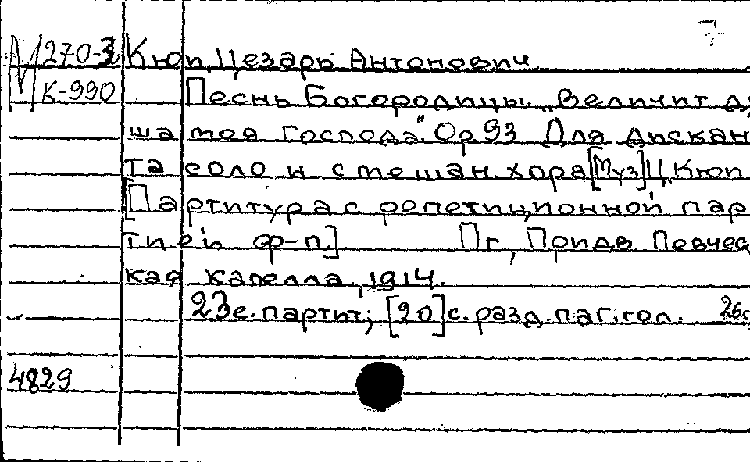 М 270-3 Кюи, Цезарь Антонович
К-990 Песнь Богородицы „Величит ду
ша моя Господа" Ор 93 Для дискан
та соло и смешан. хора [Муз] Ц. Кюи
[Партитура с репетиционной пар
тией ф-п.] Пг, Придв Певчес
кая капелла, 1914.
23с. партит; [20] с. разд. паг. гол. 26с
4829